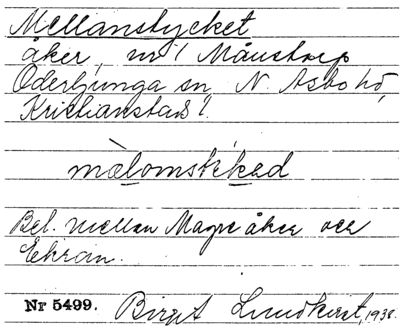 Mellanstycket
åker, nr 1 Månstorp
Oderljunga sn, N. Åsbo hd,
Kristianstads l.
mèlomstʹeked
Bel. mellan Magre åker och
Ekran.
Nr 5499. Birgit Lundkvist, 1938.